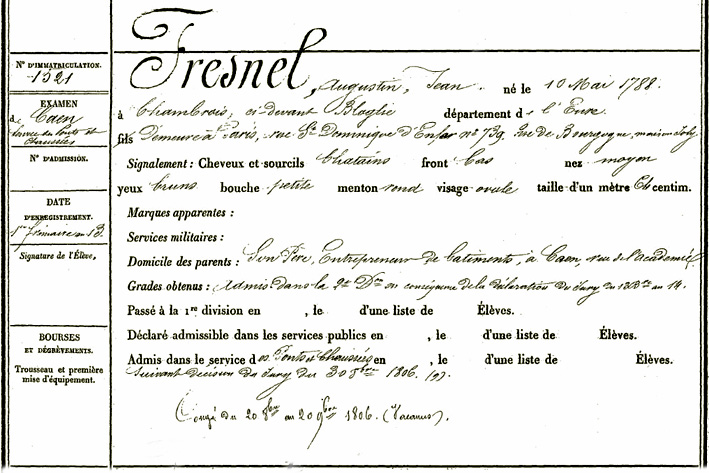 Fresnel, Augustin, Jean. né le 10 Mai 1788.
à Chambrois, ci-devant Bloglie département de l'Eure.
fils Demeure à Paris, rue St Dominique d'Enfer nº 739. Rue de Bourgogne, maison
Signalement : Cheveux et sourcils Chatains front bas nez moyen
yeux bruns bouche petite menton rond visage ovale taille d'un mètre centim.
Marques apparentes :
Services militaires :
Domicile des parents : Son Père, Entrepreneur de batiments, à Caen, rue de l'academie.
Grades obtenus : Admis dans la 2e Don en conséquence de la Déclaration du Jury du an 14.
Passé à la 1re division en , le d'une liste de Élèves.
Déclaré admissible dans les services publics en , le d'une liste de Élèves.
Admis dans le service des Ponts et Chaussées en , le d'une liste de Élèves.
suivant décision du Jury du 30 8bre 1806. (9).
Congé du 20 8bre au 20 9bre 1806. (Vacances).
Nº D'IMMATRICULATION.
1321
EXAMEN
de Caen
Ponts et
chaussées
Nº D'ADMISSION.
DATE
D'ENREGISTREMENT.
1er frimaire an 13.
Signature de l'Élève,
BOURSES
ET DÉGRÈVEMENTS.
Trousseau et première
mise d'équipement.